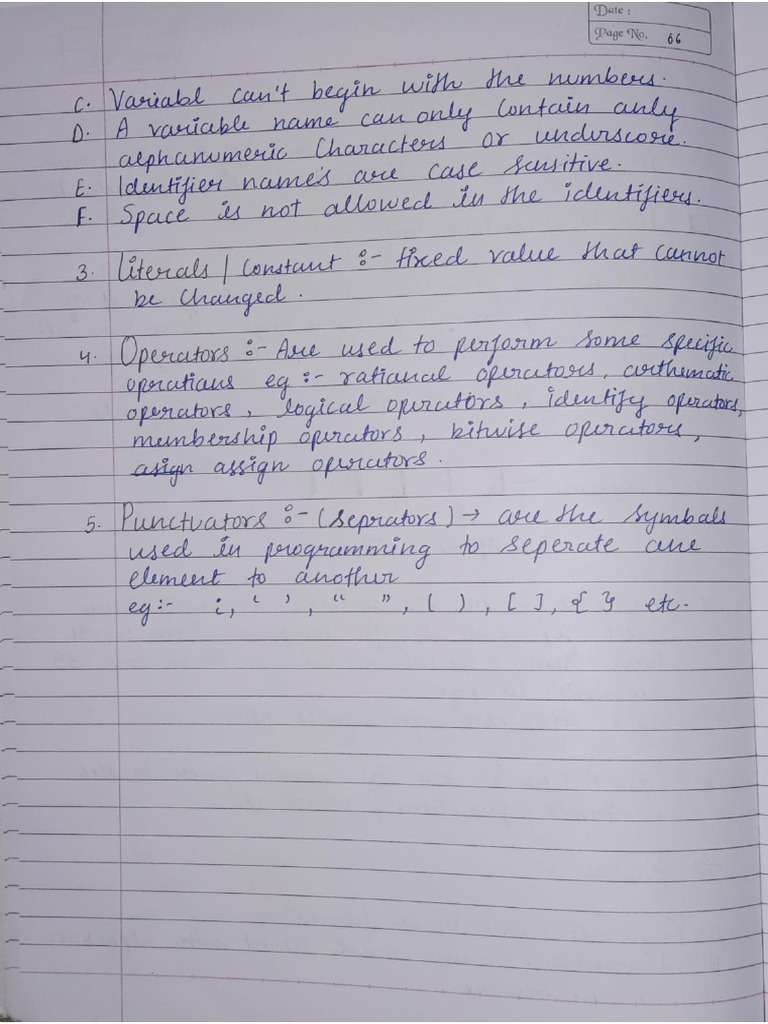 Date :
Page No. 66
C. Variabl can't begin with the numbers.
D. A variable name can only contain only
alphanumeric characters or underscore.
E. Identifier name's are case sensitive.
F. Space is not allowed in the identifiers.
3. Literals / Constant :- fixed value that cannot
be changed.
4. Operators :- Are used to perform some specific
oprations eg :- rational operators, arthematic
operators, logical operators, identify operators,
membership operators, bitwise operators,
asign assign operators.
5. Punctuators :- (seprators) → are the symbols
used in programming to seperate one
element to another
eg :- ;, ‘ ’, “ ”, ( ), [ ], { } etc.